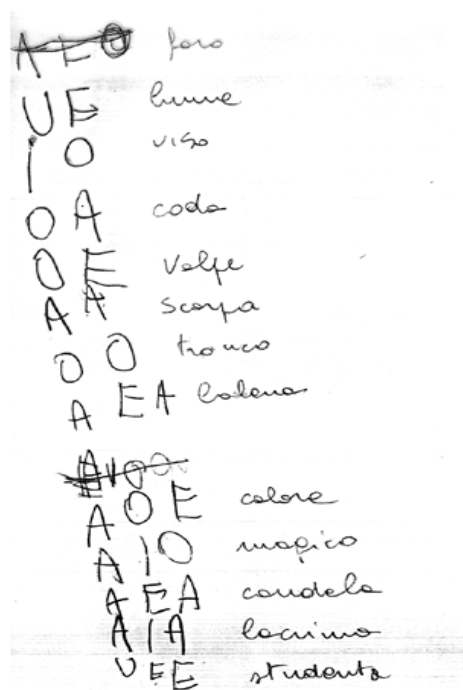 A E O faro
U E lume
i O viso
O A coda
O E volpe
A A scarpa
O O tronco
A E A balena
A O E calore
A I O magico
A E A candela
A I A lacrima
U E E studente